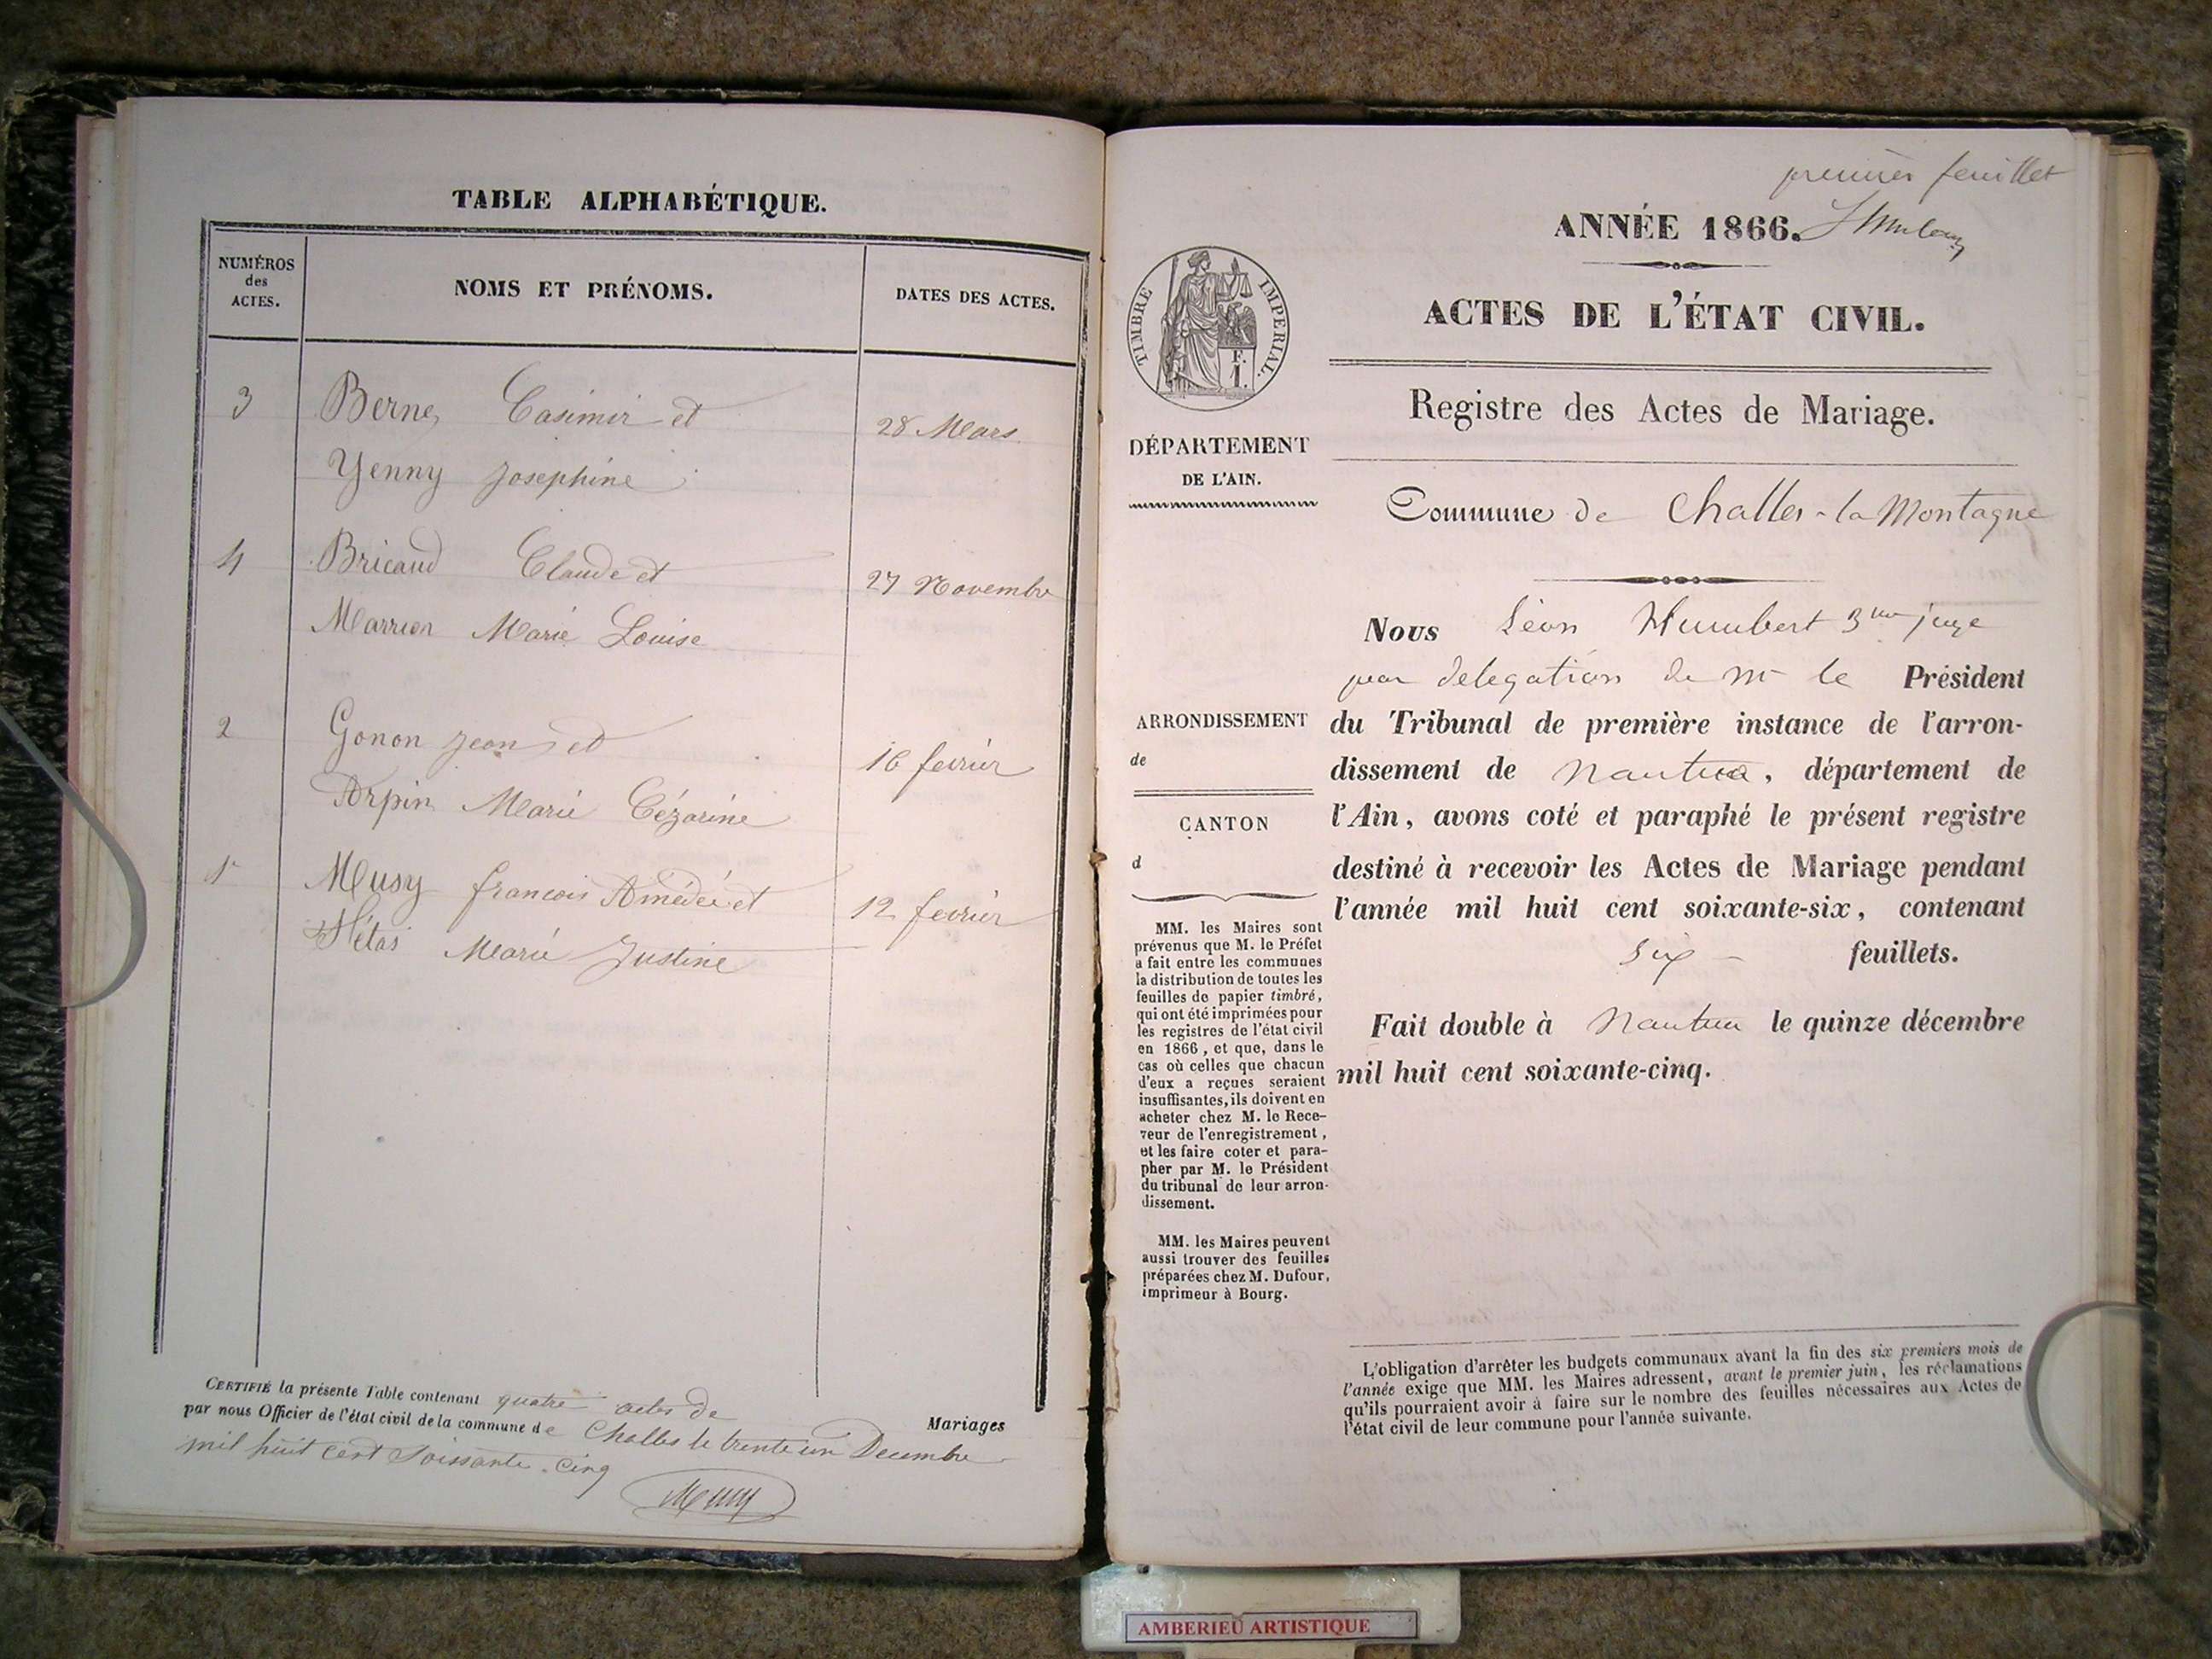 TABLE ALPHABÉTIQUE.
NUMÉROS
des
ACTES.
NOMS ET PRÉNOMS.
DATES DES ACTES.
3 Berne, Casimir et 28 Mars
Yenny Josephine
4 Bricaud Claude et 27 Novembre
Marrion Marie Louise
2 Gonon Jean et 16 fevrier
Arpin Marie Cézarine
1 Musy francois Amédée et 12 fevrier
Marie Justine
CERTIFIÉ la présente Table contenant quatre actes de Mariages
par nous Officier de l'état civil de la commune de Challes le trente un Decembre
mil huit cent Soissante-Cinq
Musy
premier feuillet
ANNÉE 1866.
ACTES DE L'ÉTAT CIVIL.
TIMBRE IMPERIAL.
F.
I.
Registre des Actes de Mariage.
DÉPARTEMENT
DE L'AIN.
Commune de Challes-la Montagne
Nous Léon Humbert 3me juge
par delegation de Mr le Président
ARRONDISSEMENT
de
CANTON
d
du Tribunal de première instance de l'arron-
dissement de Nantua, département de
l'Ain, avons coté et paraphé le présent registre
destiné à recevoir les Actes de Mariage pendant
l'année mil huit cent soixante-six, contenant
six feuillets.
Fait double à Nantua le quinze décembre
mil huit cent soixante-cinq.
MM. les Maires sont
prévenus que M. le Préfet
a fait entre les communes
la distribution de toutes les
feuilles de papier timbré,
qui ont été imprimées pour
les registres de l'état civil
en 1866, et que, dans le
cas où celles que chacun
d'eux a reçues seraient
insuffisantes, ils doivent en
acheter chez M. le Rece-
veur de l'enregistrement,
et les faire coter et para-
pher par M. le Président
du tribunal de leur arron-
dissement.
MM. les Maires peuvent
aussi trouver des feuilles
préparées chez M. Dufour,
imprimeur à Bourg.
L'obligation d'arrêter les budgets communaux avant la fin des six premiers mois de
l'année exige que MM. les Maires adressent, avant le premier juin, les réclamations
qu'ils pourraient avoir à faire sur le nombre des feuilles nécessaires aux Actes de
l'état civil de leur commune pour l'année suivante.
AMBERIEU ARTISTIQUE